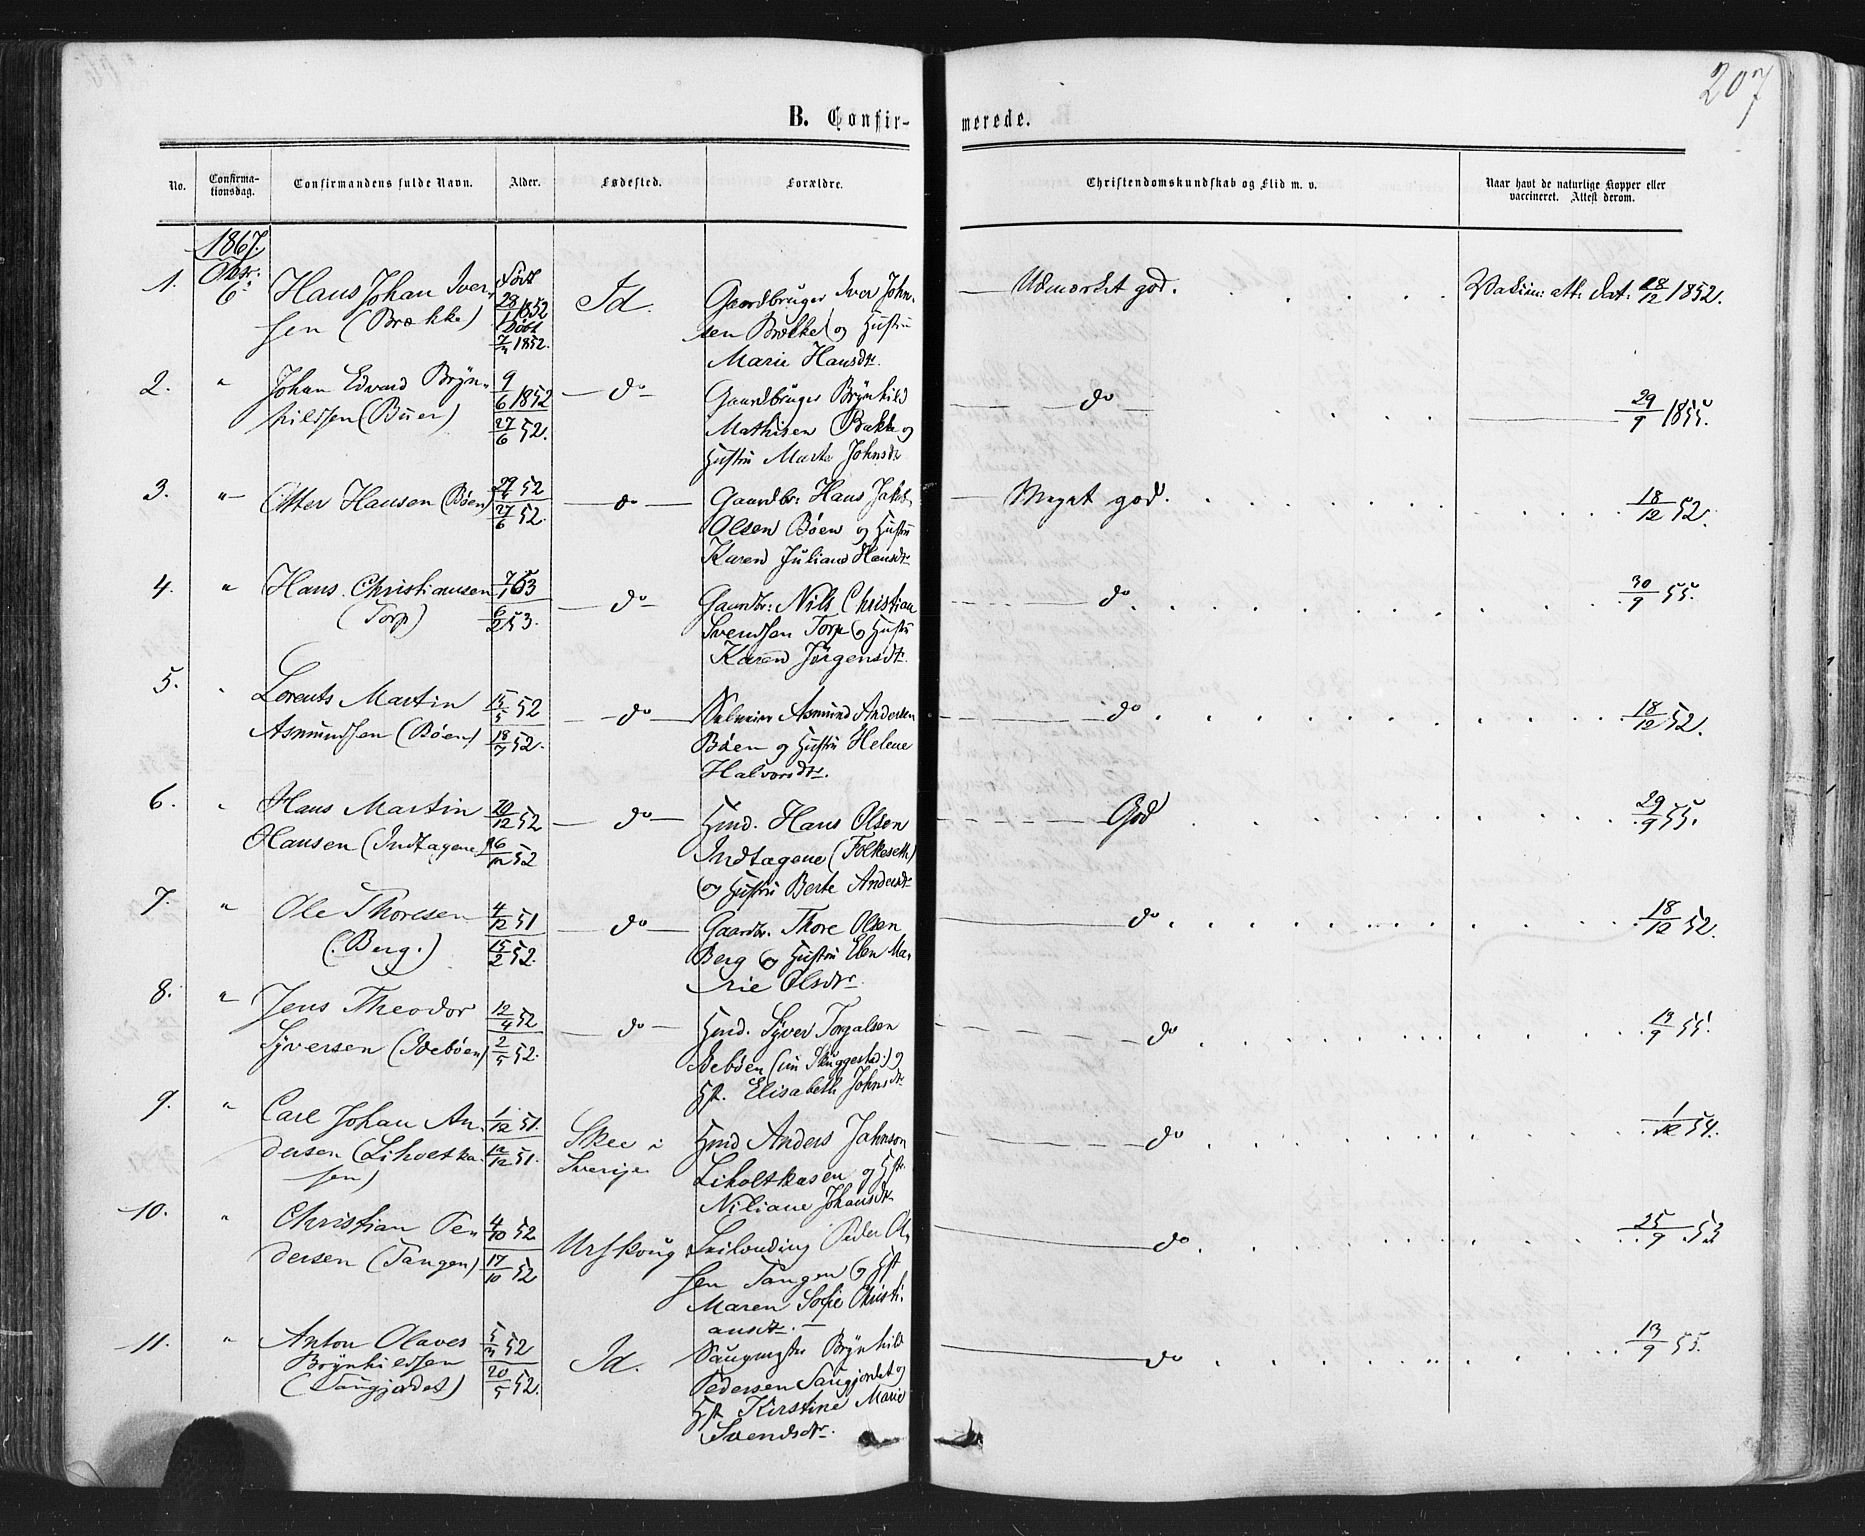 207
B. Confirmerede.
No.
Confirmationsdag.
Confirmandens fulde Navn.
Alder.
Fødested.
Forældre.
Christendomskundskab og Flid m. v.
Naar havt de naturlige Kopper eller
vaccineret. Attest derom.
1867.
Octbr:
6
1. Hans Johan Iver-
sen (Brække)
Født
28/1 1852
Døbt
7/3 1852.
Id.
Gaardbruger Iver John-
sen Brække og Hustru
Marie Hansdtr.
Udmærket god.
Vaccin: att. dat: 18/12 1852.
2. " Johan Edvard Bryn-
hildsen (Büen)
9/6 1852
27/6 52.
do
Gaardbruger Brynhild
Mathisen Bakke og
Hustru Marte Johnsdtr
do
29/9 1855.
3. " Otter Hansen (Böen)
29/5 52
27/6 52.
do
Gaardbr. Hans Jakob
Olsen Böen og Hustru
Karen Juliane Hansdtr
Meget god.
18/12 52.
4. " Hans Christiansen
(Torp)
7/1 53
6/2 53.
do
Gaardbr: Nils Christian
Svendsen Torp og Hustru
Karen Jörgensdtr.
do
30/9 55.
5. " Lorents Martin
Asmundsen (Böen)
15/5 52
18/7 52.
do
Selveier Asmund Andersen
Böen og Hustru Helene
Halvorsdtr.
do
18/12 52.
6. " Hans Martin
Hansen (Indtagene)
20/12 52
26/12 52
do
Hmd. Hans Olsen
Indtagene (Folkeseth)
og Hustru Berte Andersdtr
God
29/9 55.
7. " Ole Thoresen
(Berg.)
4/12 51
15/2 52.
do
Gaardbr. Thore Olsen
Berg og Hustru Elen Ma-
rie Olsdtr.
do
18/12 52.
8. " Jens Theodor
Syversen (Ideböen)
12/4 52
2/5 52.
do
Hmd. Syver Torgalsen
Ideböen (un Skuggestad) og
Hst. Elisabeth Johnsdtr
do
13/9 55.
9. " Carl Johan An-
dersen (Liholtka-
sen)
1/12 51.
12/12 51.
Skee i
Sverige
Hmd Anders Jahnson
Liholtkasen og Hst.
Niliane Johansdtr
do
1/12 54.
10. " Christian Pe-
dersen (Tangen)
4/10 52
17/10 52
Urskoug
Peder Ol-
sen Tangen og Hst
Maren Sofie Christi-
ansdtr.
do
25/9 53
11. " Anton Olaves
Brynhildsen
(Saugjordet)
5/3 52
20/5 52.
Id.
Saugmester Brynhild
Pedersen Saugjordet og
Hst Kirstine Marie
Svendsdtr.
do
13/9 55.